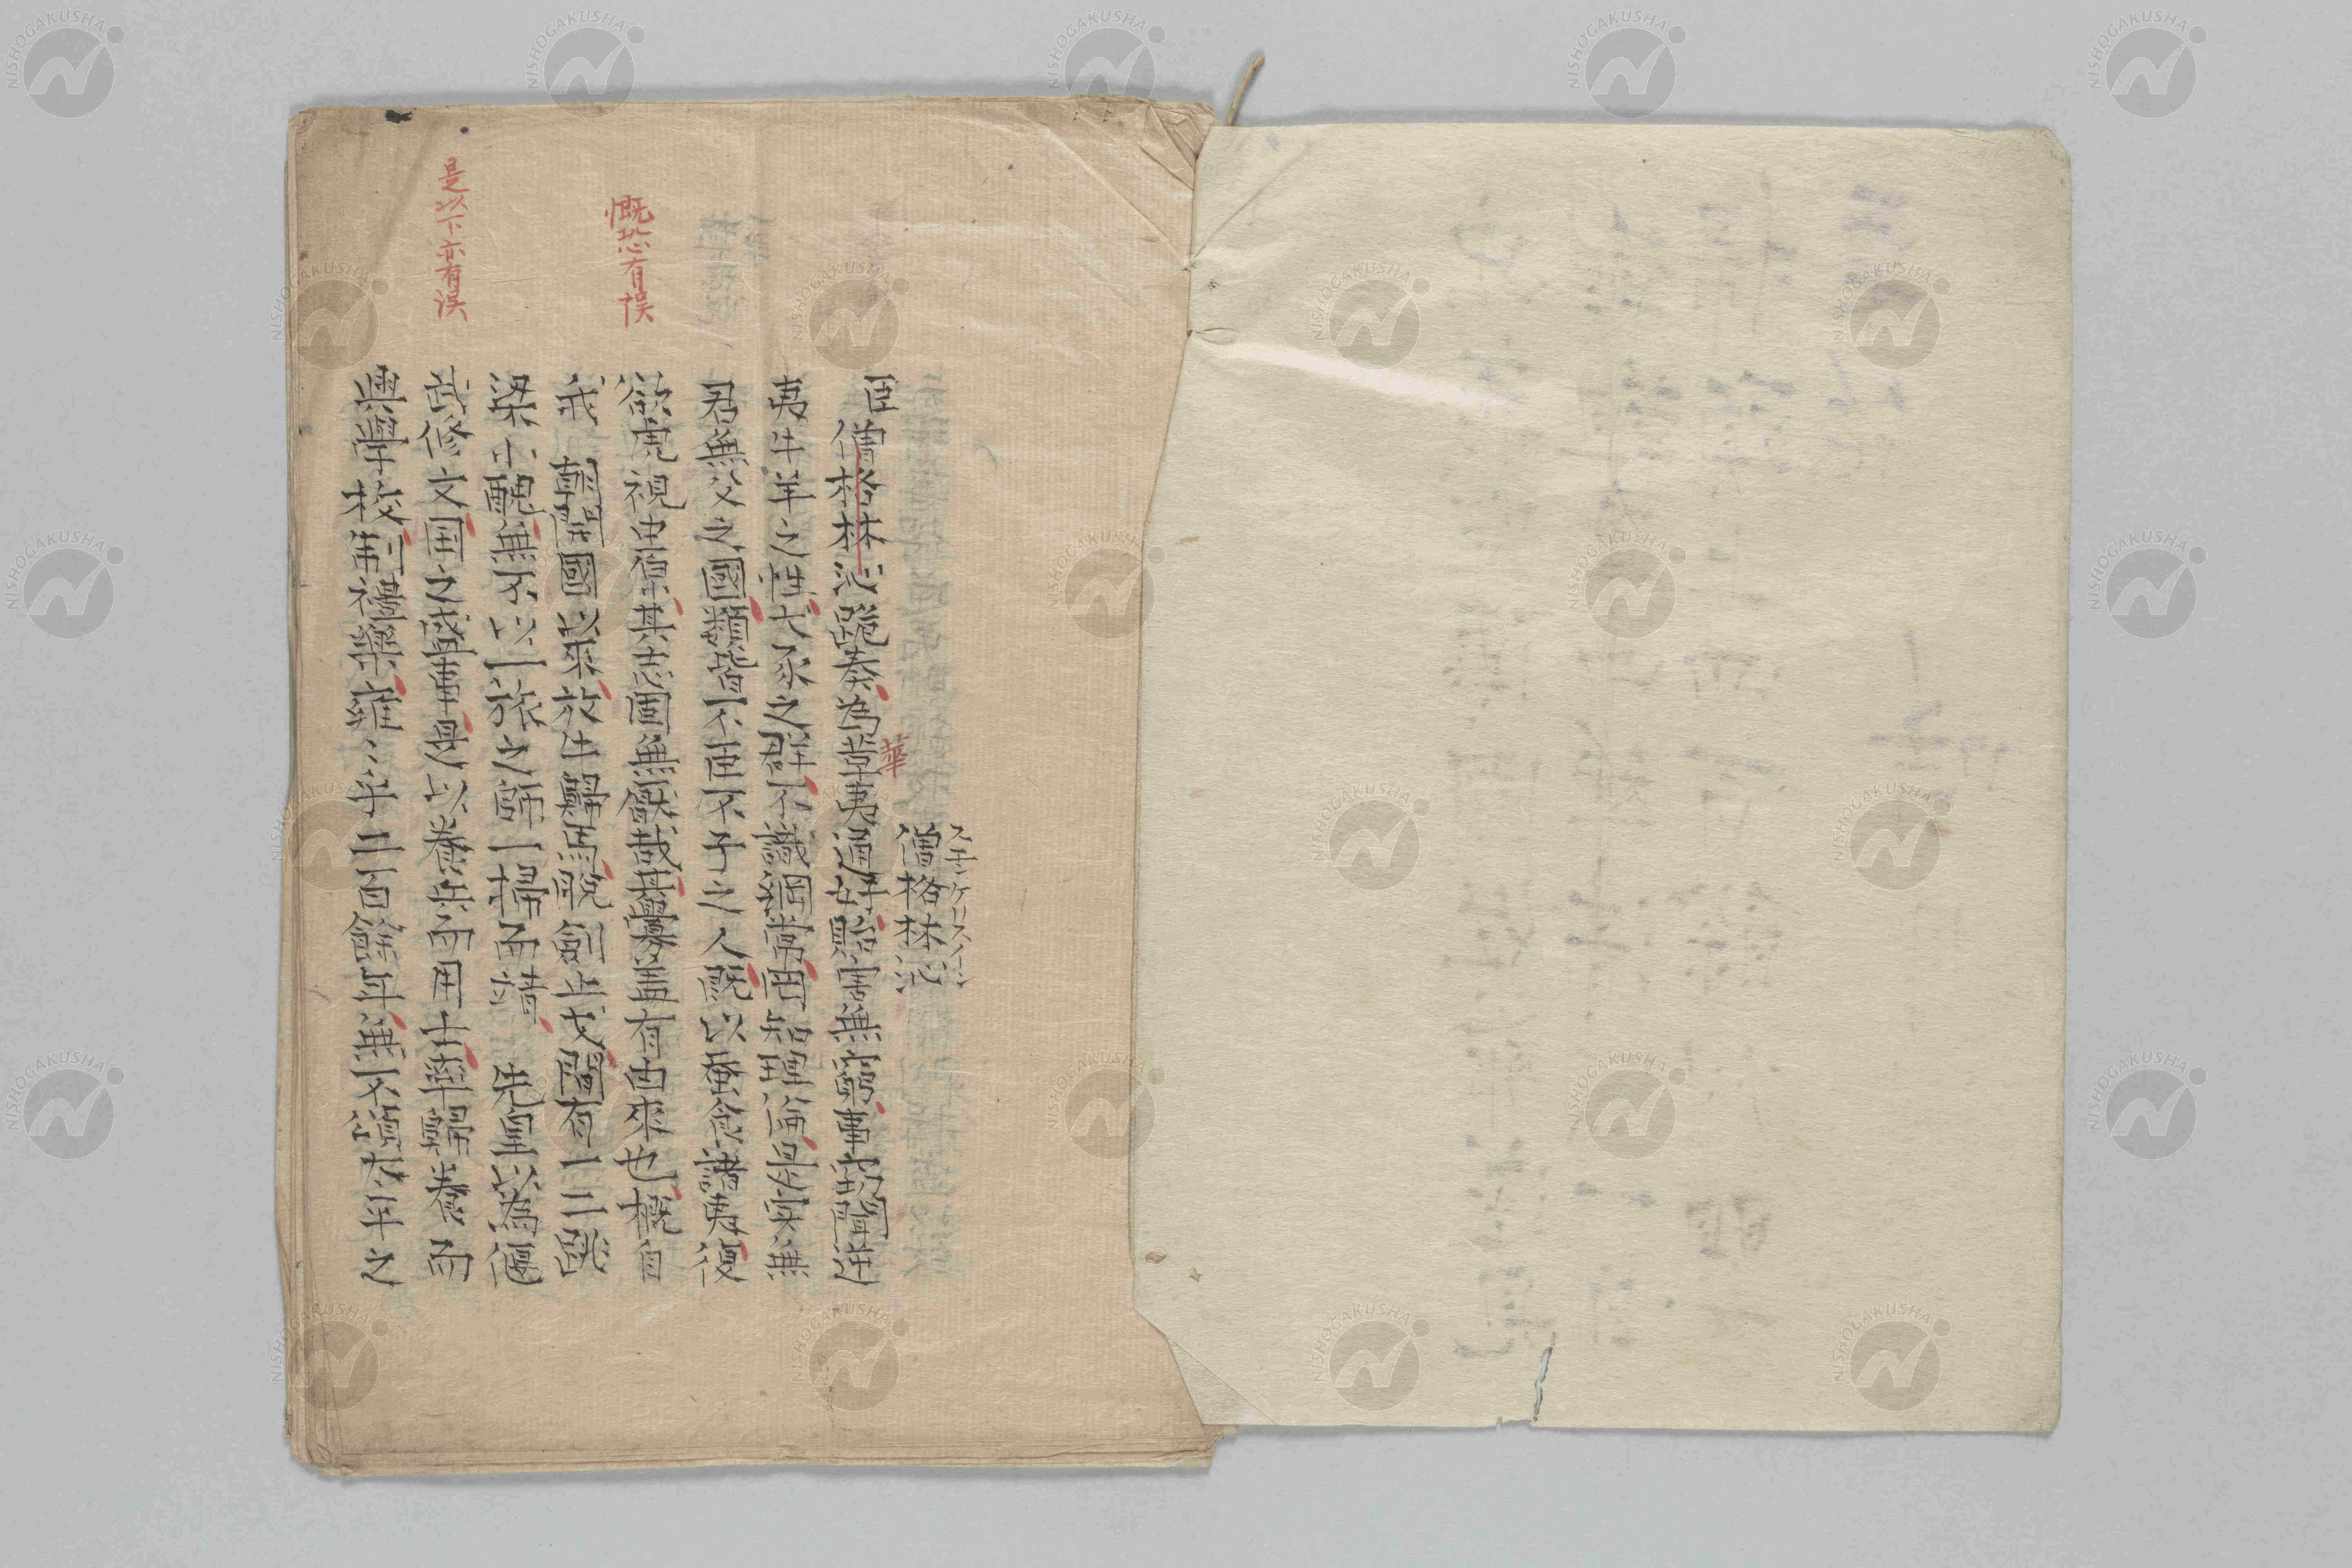 僧格林沁
臣僧格林沁跪奏為華夷逼処貽害無窮事窃聞逆
華
夷牛羊之性犬豕之群不識綱常罔知理論是実無
君無父之國類皆不臣不子之人既以蚕食諸夷復
欲虎視中原其志固無猒哉其釁盖有由来也概自
慨恐有誤
我 朝開國以來放牛歸馬脱劍止戈間有一二跳
梁小醜無不以一旅之師一掃而靖 先皇以為偃
武修文国之盛事是以養兵而用士卒歸養而
是以下亦有誤
興學校制禮樂雍〻乎二百餘年無不頌太平之
NISHOGAKUSHA